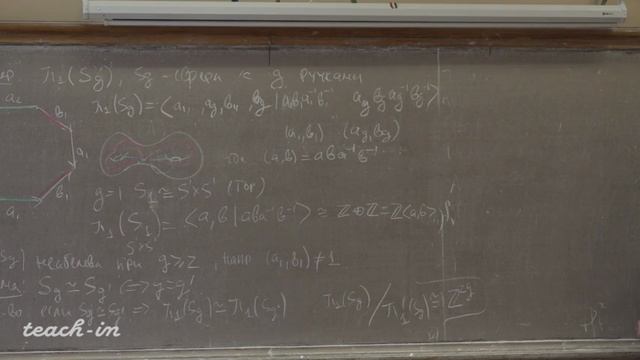 π₁(Sg), Sg - сфера с g ручками
π₁(Sg) = <a₁,..,ag, b₁, bg | a₁b₁a₁⁻¹b₁⁻¹ ag bg ag⁻¹ bg⁻¹>
(a₁,b₁) (ag,bg)
где (a,b) = aba⁻¹b⁻¹
g=1 S₁ ≅ S¹×S¹ (тор)
π₁(S₁) = <a,b | aba⁻¹b⁻¹> ≅ ℤ⊕ℤ = ℤ<a,b>
S¹×S¹
Sg) неабелева при g≥2, напр (a₁,b₁) ≠ 1
Sg ≃ Sg' <=> g=g'
если Sg ≃ Sg' => π₁(Sg) ≅ π₁(Sg') π₁(Sg)/π₁'(Sg) ≅ ℤ²ᵍ
a₁
b₁
a₁
b₁
a₁
teach-in